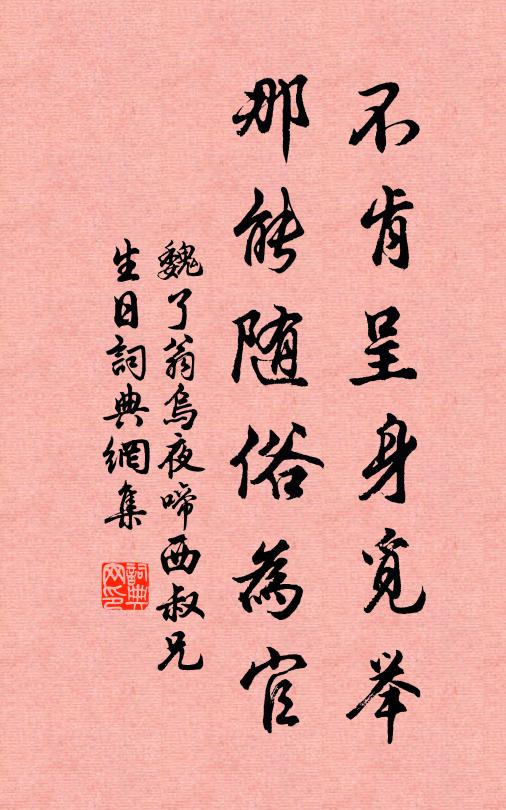 不肯呈身觅举
那能随俗為官
魏了翁烏夜啼西叔兄
生日詞典網集
詞典网印